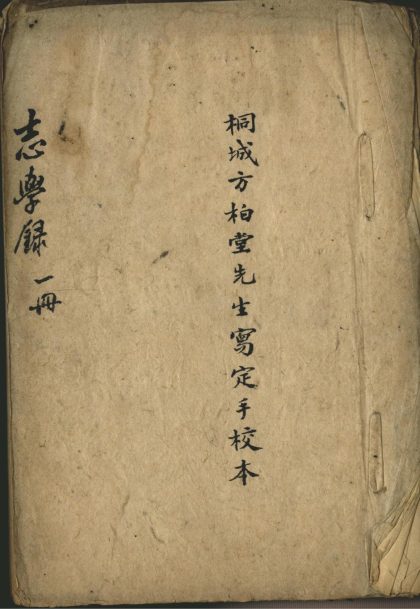 桐城方柏堂先生寫定手校本
志學録 一冊